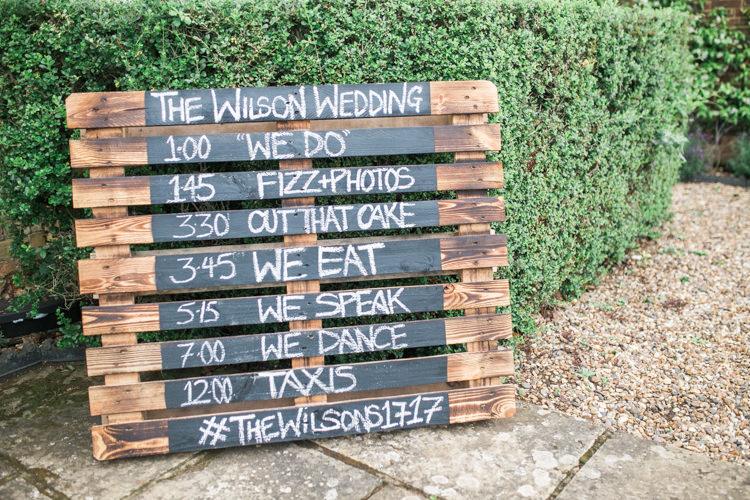 THE WILSON WEDDING
1:00 "WE DO"
1:45 FIZZ+PHOTOS
3:30 CUT THAT CAKE
3:45 WE EAT
5:15 WE SPEAK
7:00 WE DANCE
12:00 TAXIS
#THEWILSONS1717